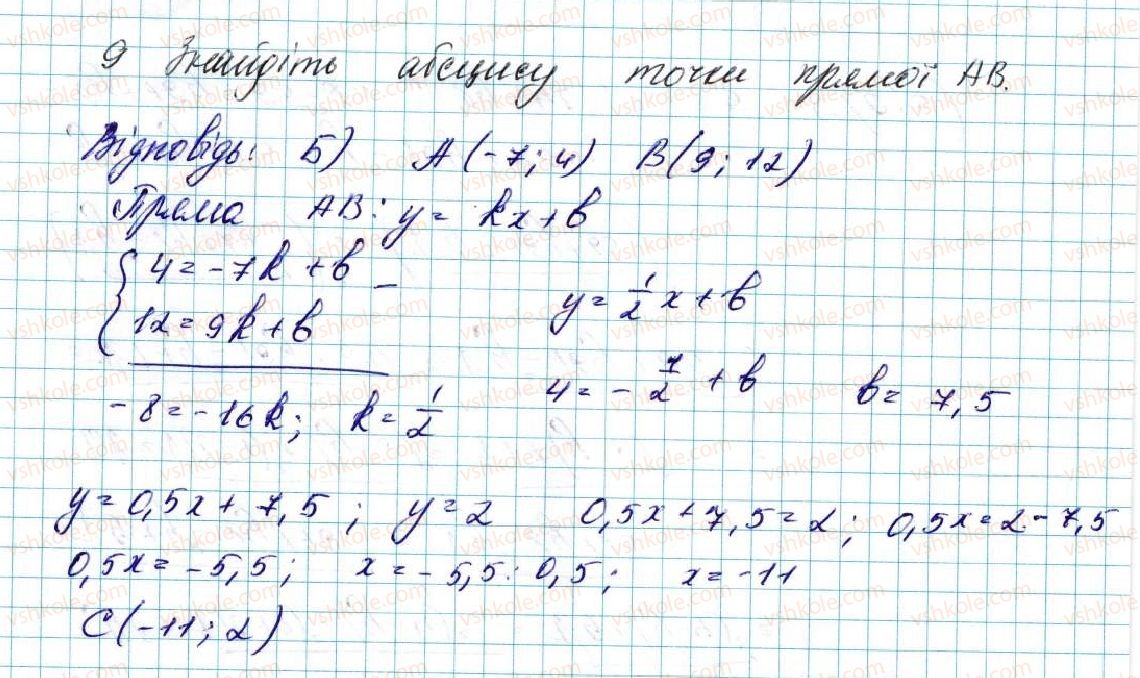 9 Знайдіть абсцису точки прямої AB.
Відповідь: Б) A(-7; 4) B(9; 12)
Пряма AB: y = kx + b
{ 4 = -7k + b
12 = 9k + b
-
y = 1/2 x + b
-8 = -16k; k = 1/2
4 = - 7/2 + b b = 7,5
y = 0,5x + 7,5; y = 2 0,5x + 7,5 = 2; 0,5x = 2 - 7,5
0,5x = -5,5; x = -5,5 : 0,5; x = -11
C(-11; 2)